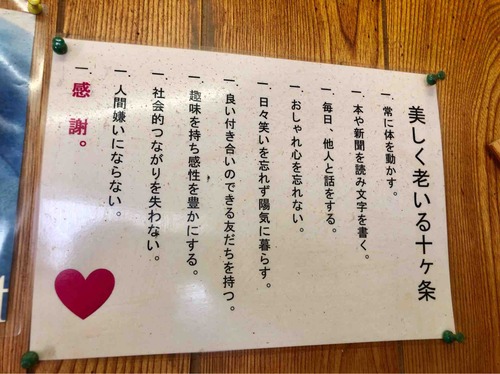 美しく老いる十ヶ条
一．常に体を動かす。
一．本や新聞を読み文字を書く。
一．毎日、他人と話をする。
一．おしゃれ心を忘れない。
一．日々笑いを忘れず陽気に暮らす。
一．良い付き合いのできる友だちを持つ。
一．趣味を持ち感性を豊かにする。
一．社会的つながりを失わない。
一．人間嫌いにならない。
一．感謝。